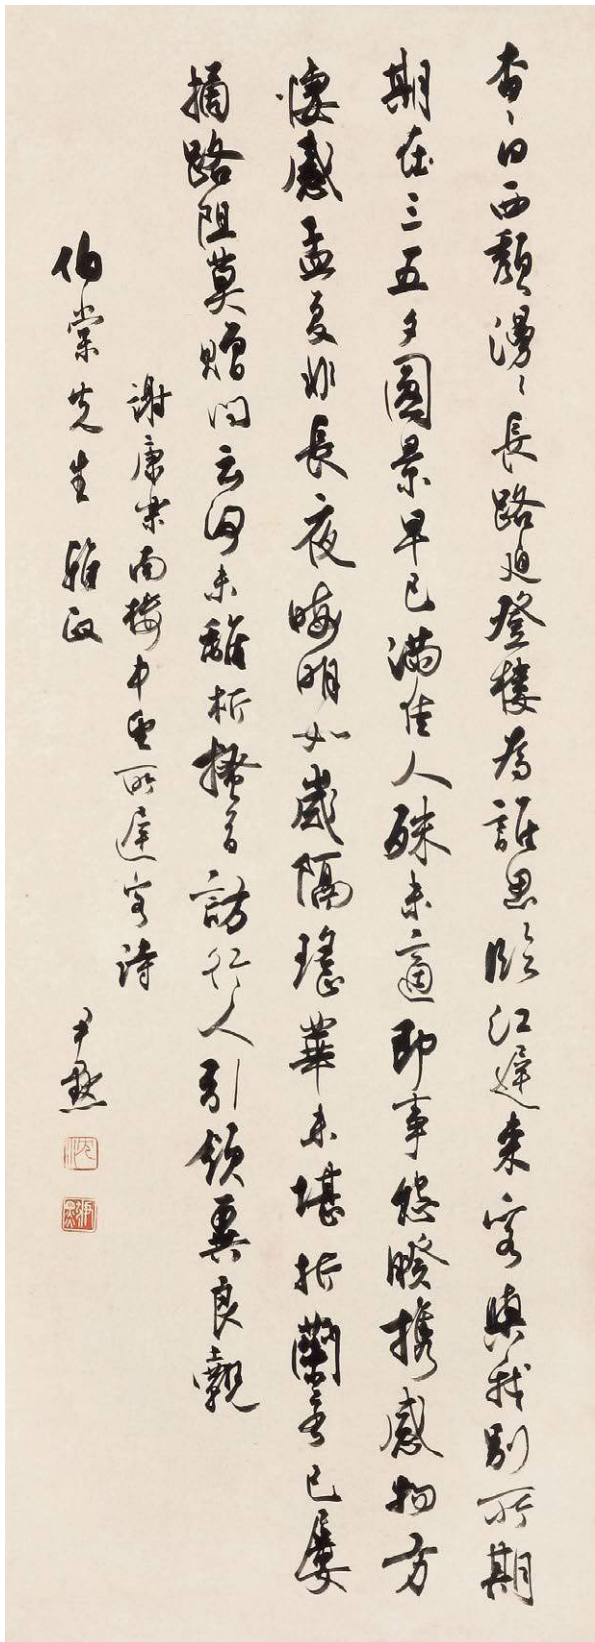 杳〻日西頹漫〻長路迫登樓為誰思臨江遲來客與我別所期
期在三五夕圓景早已滿佳人殊未適即事怨睽攜感物方
悽感孟夏非長夜晦明如歲隔瑤華未堪折蘭苕已屢
摘路阻莫贈問云何未離析搔首訪行人引領冀良覿
謝康樂南樓中望所遲客詩
伯棠先生雅政
尹默
沈
尹默